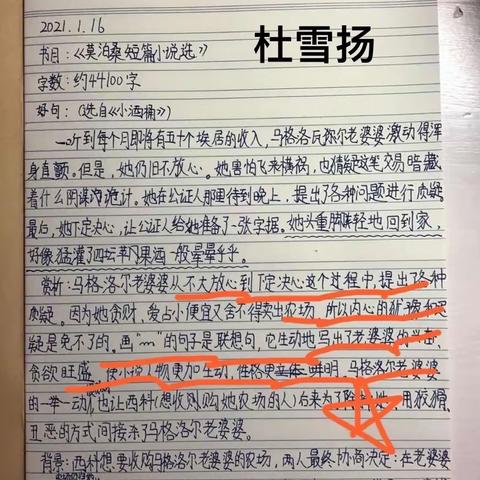 杜雪扬
2021.1.16
书目:《莫泊桑短篇小说选》
字数:约44100字
好句:(选自《小酒桶》)
一听到每个月即将有五十个埃居的收入,马格洛瓦尔老婆婆激动得浑
身直颤。但是,她仍旧不放心。她害怕飞来横祸,也猜疑这笔交易暗藏
着什么阴谋诡计。她在公证人那里待到晚上,提出了各种问题进行质疑。
最后,她下定决心,让公证人给她准备了一张字据。她头重脚轻地回到家,
好像猛灌了四坛苹果酒一般晕晕乎乎。
赏析:马格洛尔老婆婆从不大放心到下定决心这个过程中,提出了各种
质疑。因为她贪财,爱占小便宜又舍不得卖出农场,所以内心的犹豫和
疑是免不了的。画"m"的句子是联想句,它生动地写出了老婆婆的
贪欲旺盛,使小说人物更加生动,性格更鲜明,马格洛尔老婆婆
的一举一动,也让西科(想收购她农场的人)后来为了,用狡猾、
丑恶的方式间接杀马格洛尔老婆婆。
背景:西科想要收购马格洛尔老婆婆的农场,两人最终协商决定:在老婆婆